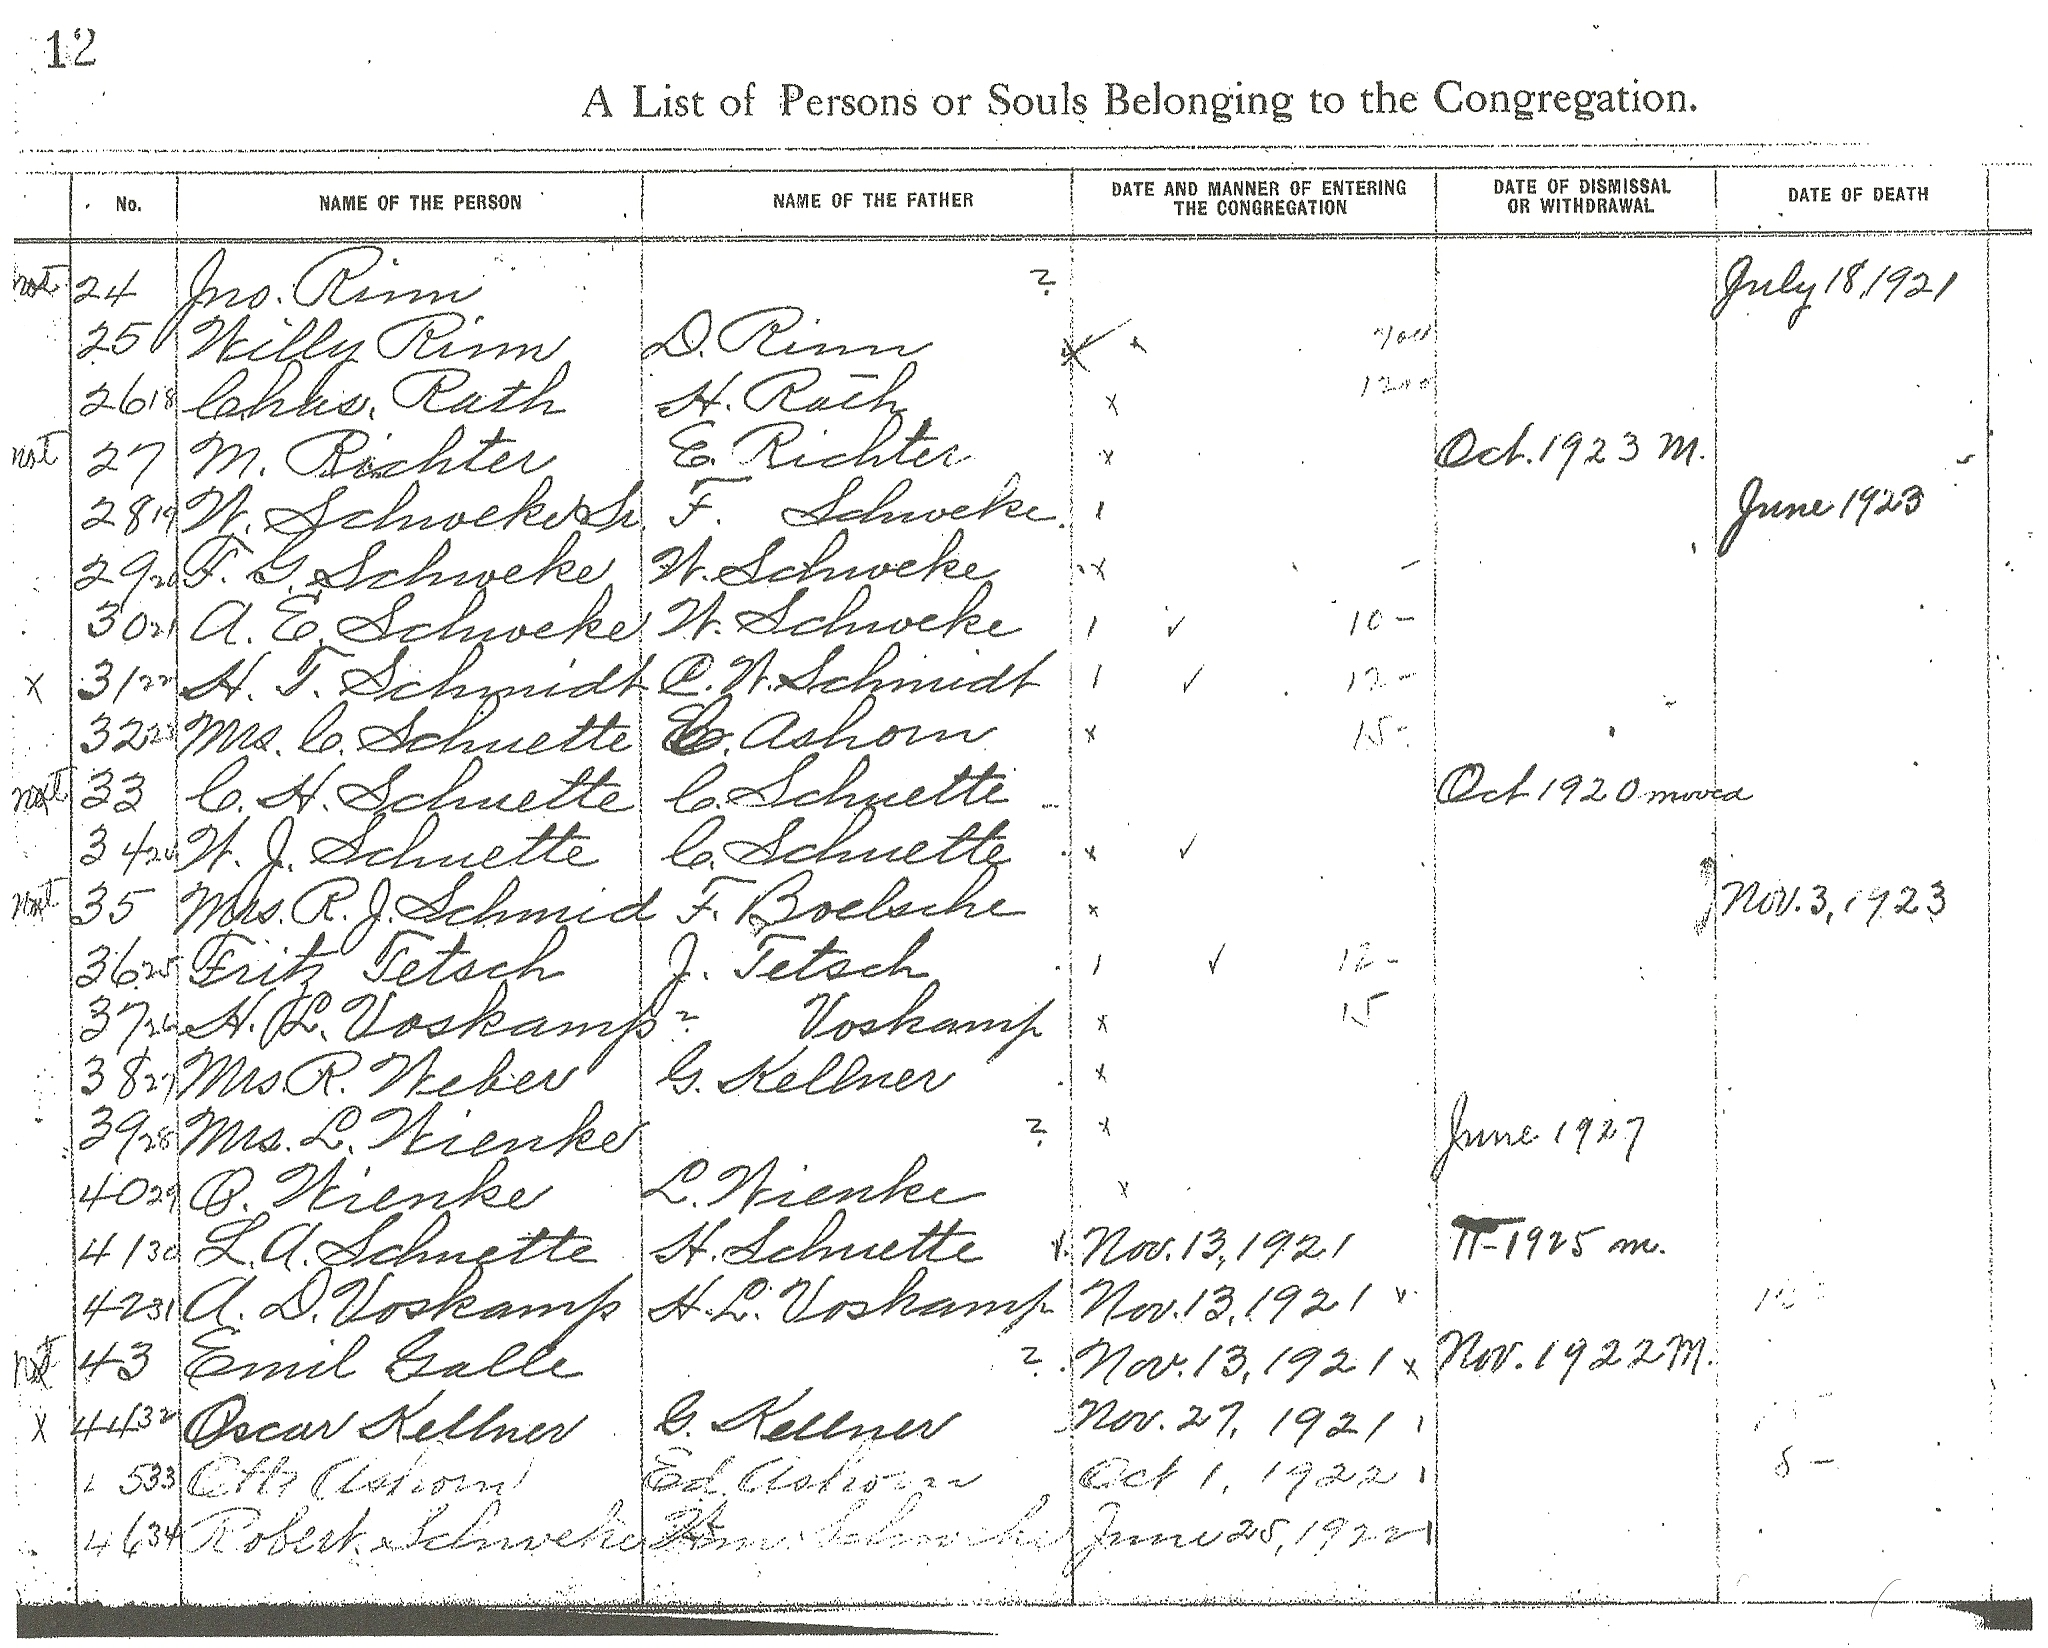 12
A List of Persons or Souls Belonging to the Congregation.
No. NAME OF THE PERSON NAME OF THE FATHER DATE AND MANNER OF ENTERING THE CONGREGATION DATE OF DISMISSAL OR WITHDRAWAL DATE OF DEATH
not 24 Jno. Rinn ? July 18, 1921
25 Willy Rinn D. Rinn x
26 18 Chas. Rath H. Rath x 12 00
not 27 M. Richter E. Richter x Oct. 1923 M.
28 19 W. Schweke Sr. F. Schweke 1 June 1923
29 20 F. G. Schweke W. Schweke x -
30 21 A. E. Schweke W. Schweke 1 ✓ 10 -
x 31 22 H. T. Schmidt C. W. Schmidt 1 ✓ 12 -
32 23 Mrs. C. Schuette C. Ashorn x 15 -
not 33 C. H. Schuette C. Schuette Oct 1920 moved
34 24 W. J. Schuette C. Schuette x ✓
not 35 Mrs. R. J. Schmid F. Boelsche x Nov. 3, 1923
36 25 Fritz Tetsch J. Tetsch 1 ✓ 12 -
37 26 H. L. Voskamp ? Voskamp x 15
38 27 Mrs. R. Weber G. Kellner x
39 28 Mrs. L. Wienke ? x June 1927
40 29 Wienke L. Wienke x
41 30 L. A. Schuette H. Schuette x Nov. 13, 1921 1925 m.
42 31 A. D. Voskamp H. L. Voskamp Nov. 13, 1921 x
not 43 Emil Galle ? Nov. 13, 1921 x Nov. 1922 M.
x 44 32 Oscar Kellner G. Kellner Nov. 27, 1921 1
4533 Otto Ashorn Ed. Ashorn Oct 1, 1922 1 8 -
46 34 Robert Schweke Wm. Schweke June 25, 1922 1